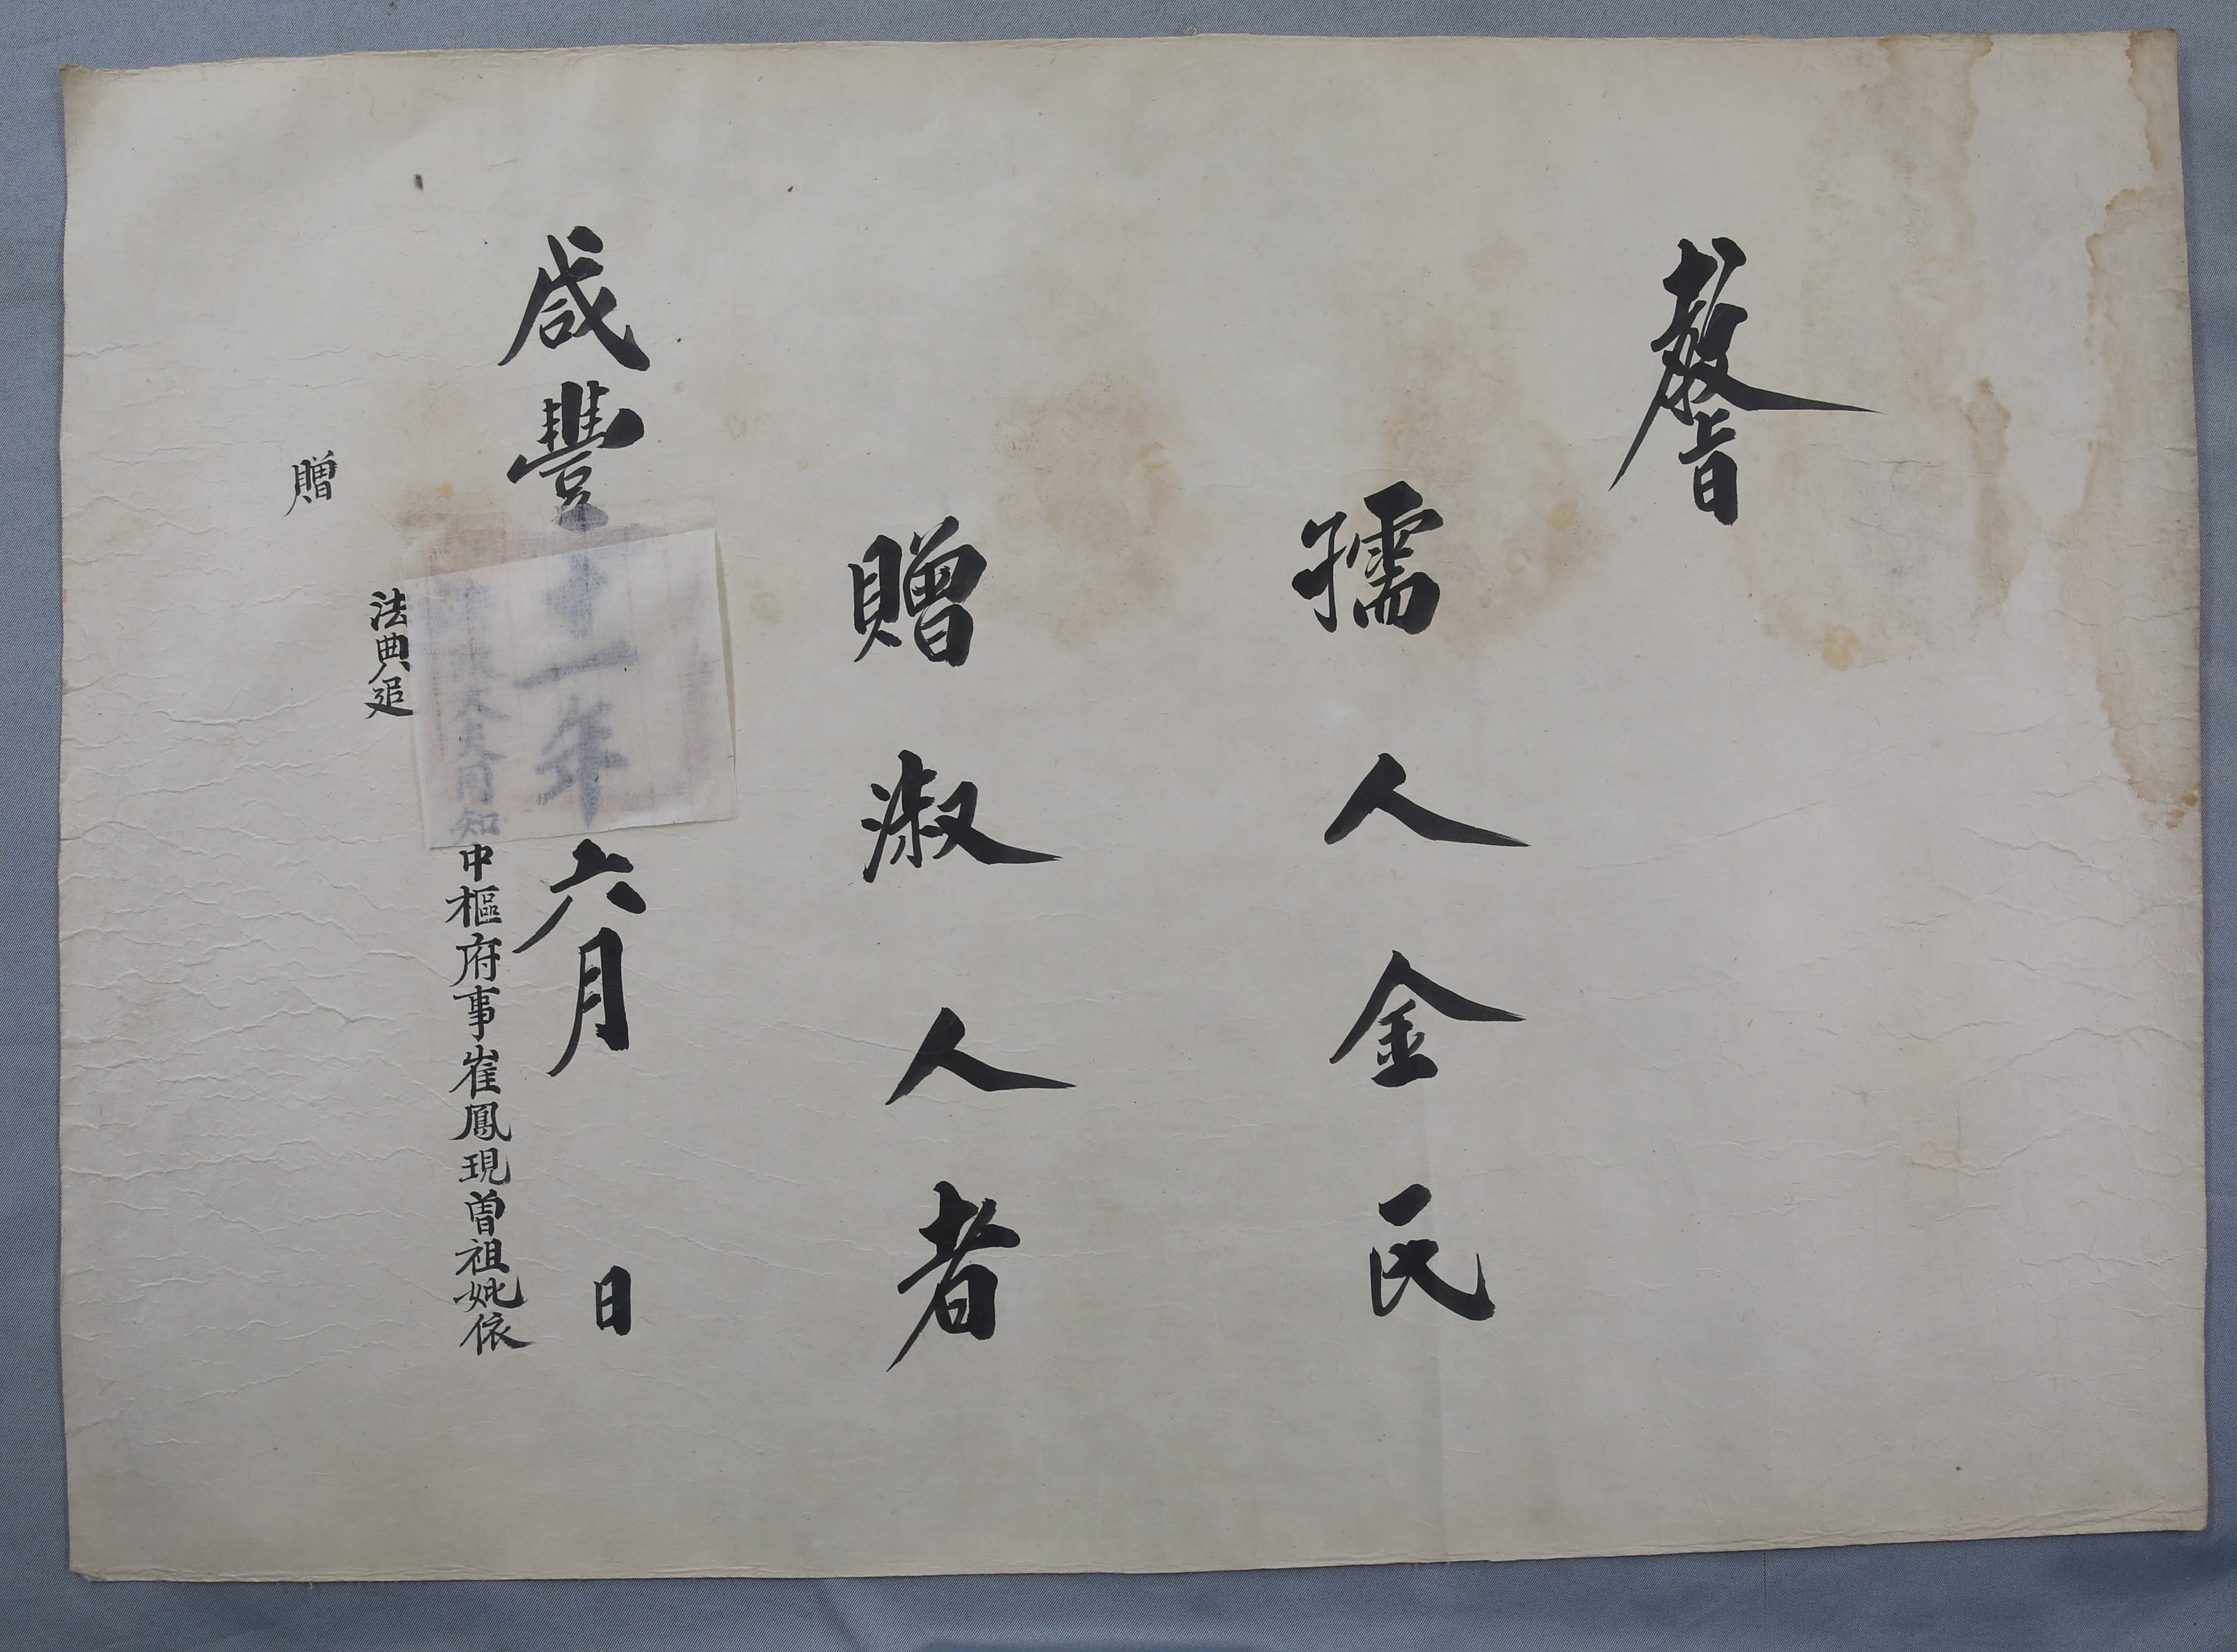 敎旨
孺人金氏
贈淑人者
咸豐十一年六月 日
大夫同知中樞府事崔鳳現曾祖妣依
法典追
贈